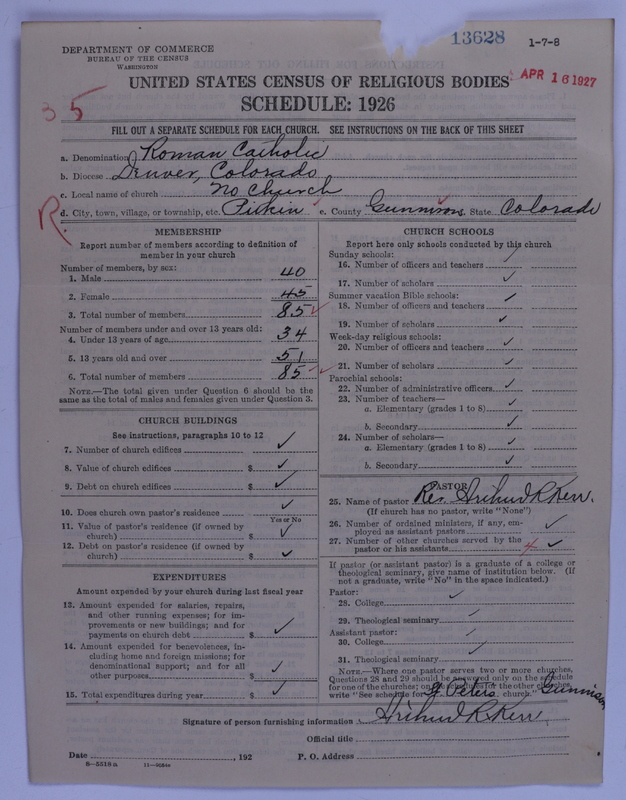 13628
1-7-8
DEPARTMENT OF COMMERCE
BUREAU OF THE CENSUS
WASHINGTON
UNITED STATES CENSUS OF RELIGIOUS BODIES
APR 16 1927
SCHEDULE: 1926
35
FILL OUT A SEPARATE SCHEDULE FOR EACH CHURCH. SEE INSTRUCTIONS ON THE BACK OF THIS SHEET
a. Denomination Roman Catholic
b. Diocese Denver, Colorado
c. Local name of church No Church
R. d. City, town, village, or township, etc. Pitkin e. County Gunnison, State Colorado
MEMBERSHIP
Report number of members according to definition of
member in your church
Number of members, by sex:
1. Male 40
2. Female 45
3. Total number of members 85
Number of members under and over 13 years old:
4. Under 13 years of age 34
5. 13 years old and over 51
6. Total number of members 85
NOTE.—The total given under Question 6 should be the
same as the total of males and females given under Question 3.
CHURCH BUILDINGS
See instructions, paragraphs 10 to 12
7. Number of church edifices ✓
8. Value of church edifices $ ✓
9. Debt on church edifices $ ✓
10. Does church own pastor's residence ✓
Yes or No
11. Value of pastor's residence (if owned by
church) $ ✓
12. Debt on pastor's residence (if owned by
church) $ ✓
EXPENDITURES
Amount expended by your church during last fiscal year
13. Amount expended for salaries, repairs,
and other running expenses; for im-
provements or new buildings; and for
payments on church debt $ ✓
14. Amount expended for benevolences, in-
cluding home and foreign missions; for
denominational support; and for all
other purposes $ ✓
15. Total expenditures during year $ ✓
CHURCH SCHOOLS
Report here only schools conducted by this church
Sunday schools:
16. Number of officers and teachers ✓
17. Number of scholars ✓
Summer vacation Bible schools:
18. Number of officers and teachers ✓
19. Number of scholars ✓
Week-day religious schools:
20. Number of officers and teachers ✓
21. Number of scholars ✓
Parochial schools:
22. Number of administrative officers ✓
23. Number of teachers—
a. Elementary (grades 1 to 8) ✓
b. Secondary ✓
24. Number of scholars—
a. Elementary (grades 1 to 8) ✓
b. Secondary ✓
PASTOR
25. Name of pastor Rev. Arthur R. Kerr.
(If church has no pastor, write "None")
26. Number of ordained ministers, if any, em-
ployed as assistant pastors ✓
27. Number of other churches served by the
pastor or his assistants 4 ✓
If pastor (or assistant pastor) is a graduate of a college or
theological seminary, give name of institution below. (If
not a graduate, write "No" in the space indicated.)
Pastor:
28. College ✓
29. Theological seminary ✓
Assistant pastor:
30. College ✓
31. Theological seminary ✓
NOTE.—Where one pastor serves two or more churches,
Questions 28 and 29 should be answered only on the schedule
for one of the churches; on the schedules for the other churches,
write "See schedule for St Peters church." Gunnison
Signature of person furnishing information Arthur R. Kerr.
Official title
Date , 192 P. O. Address
8—5518a